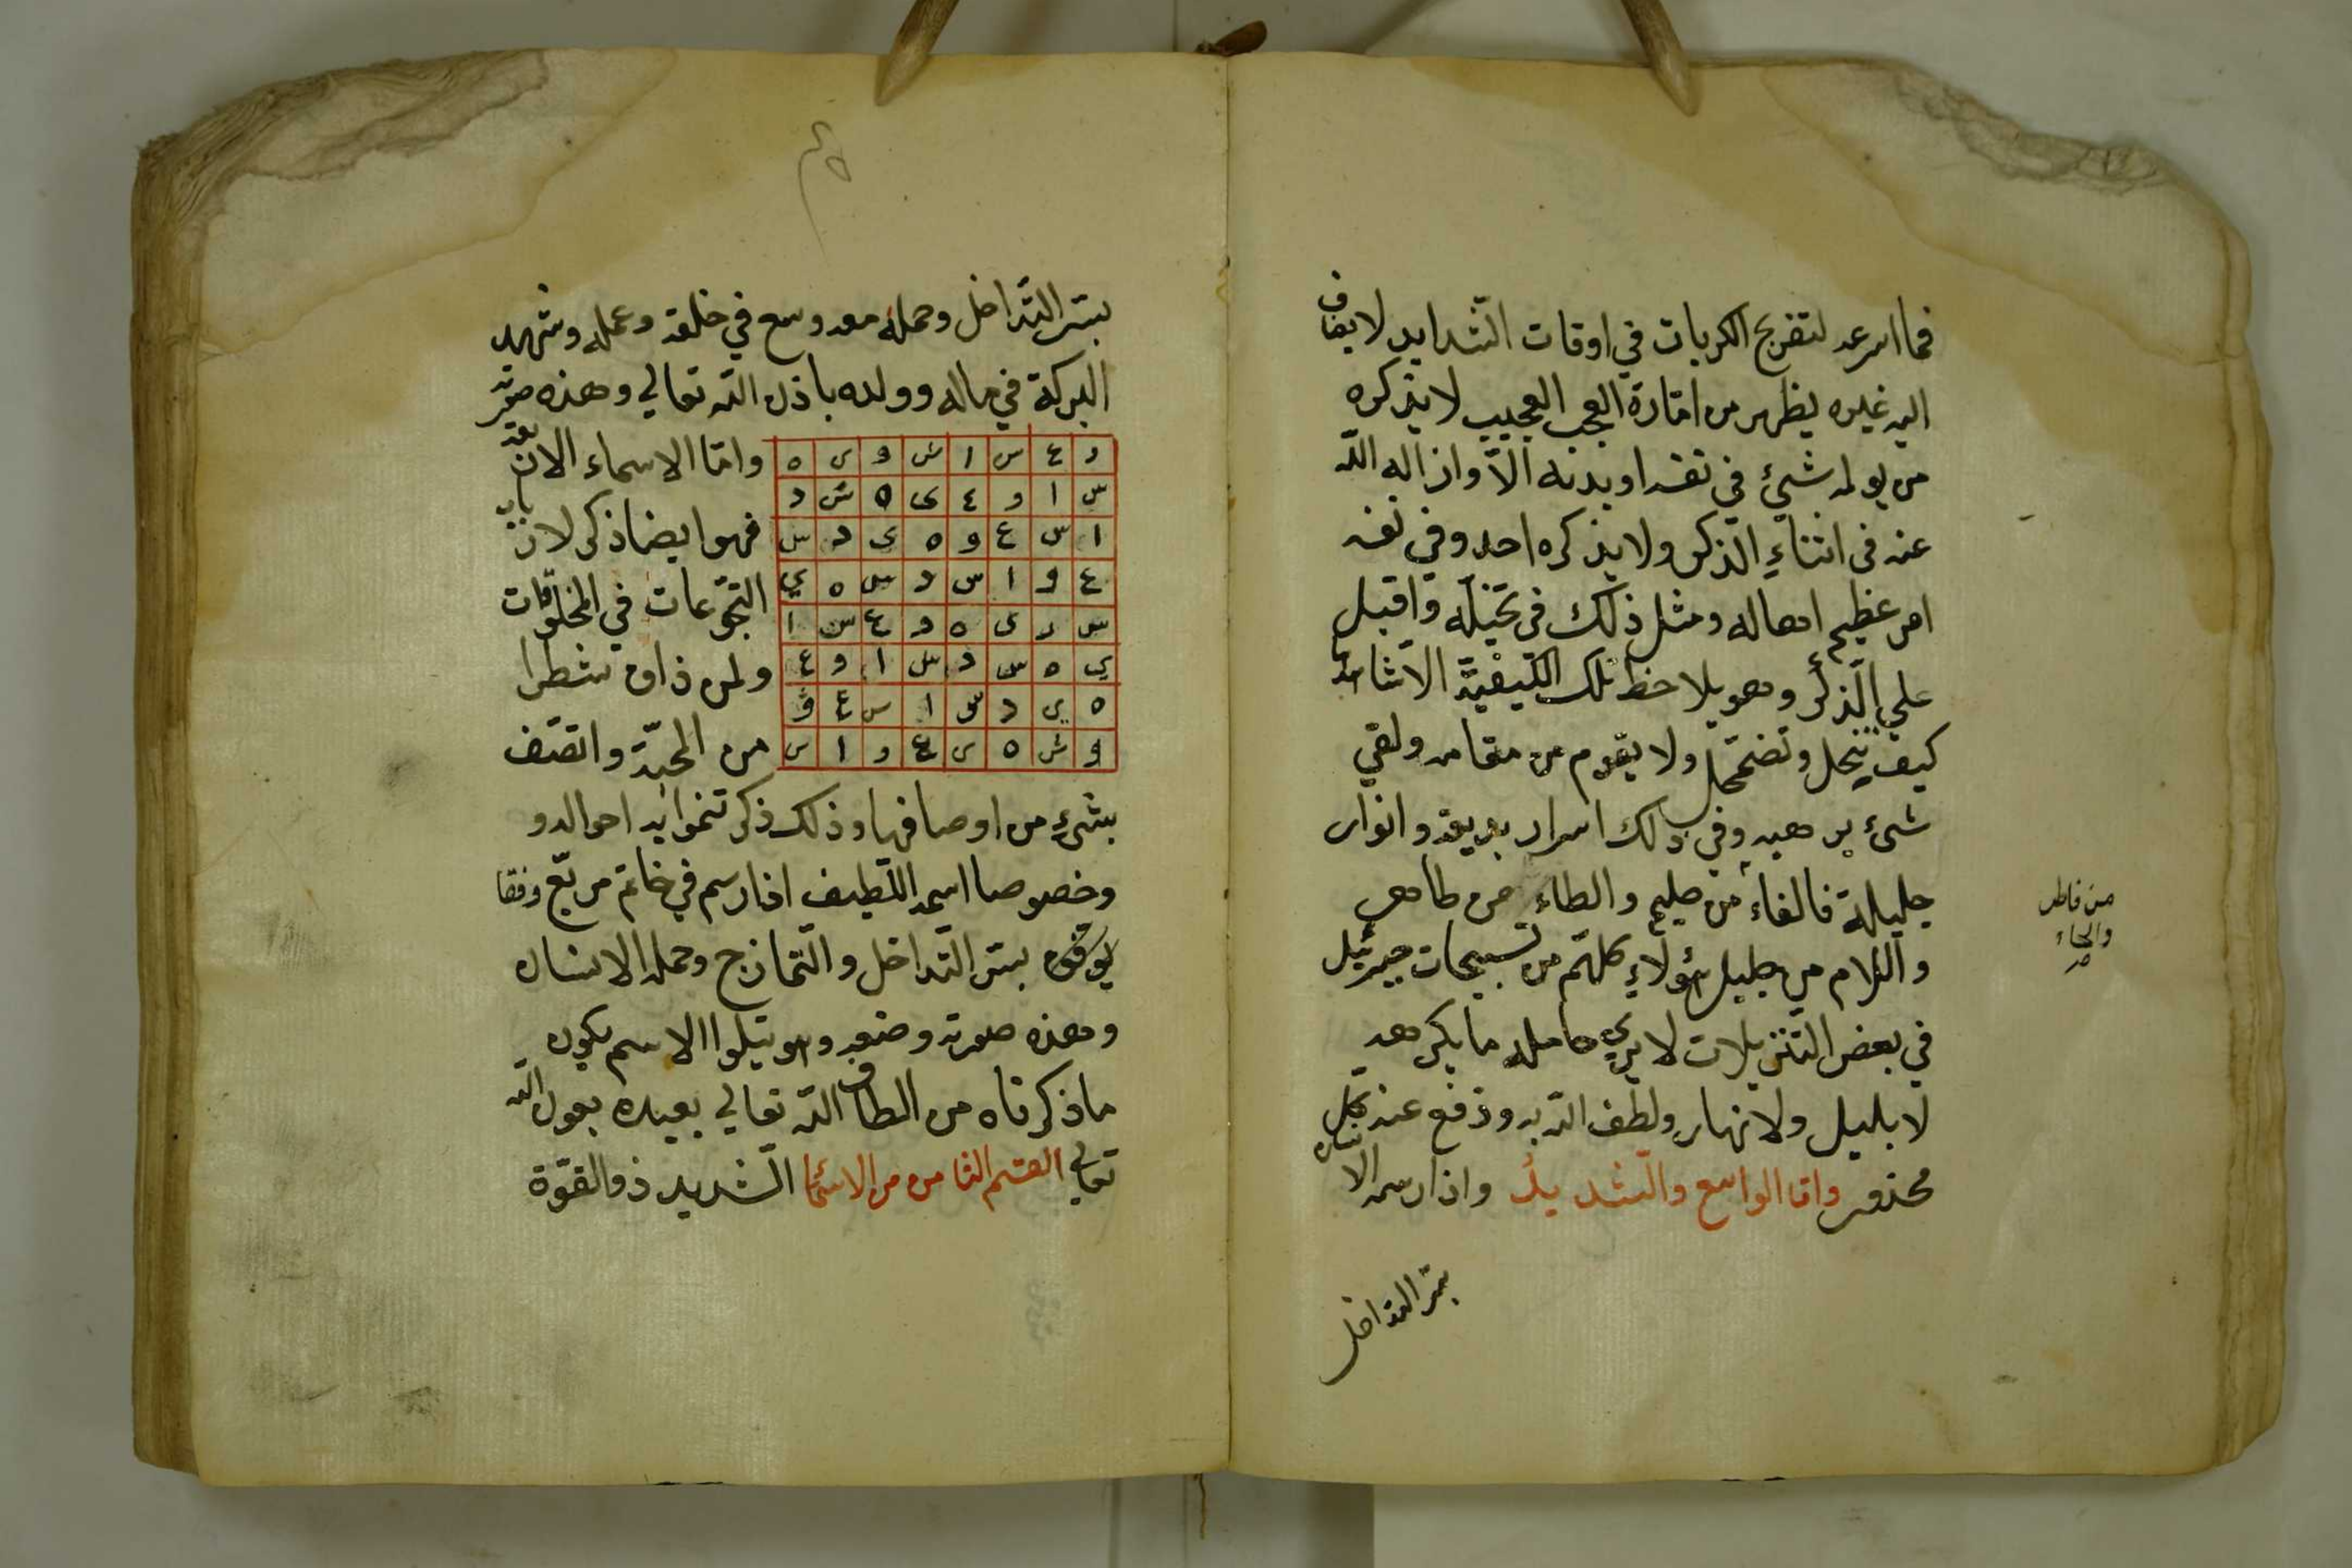 فما اسرعه لتفريج الكربات في اوقات الشدايد لا يضاف
اليه غيره يظهر من اثارة العجب العجيب لا يذكره
من يولمه شيئ في نفسه او بدنه الا وازاله الله
عنه فى اثناء الذكر ولا يذكره احد وفي نفسه
امر عظيم اهاله ومثل ذلك فى تخيله واقبل
علي الذكر وهو يلاحظ تلك الكيفية
كيف ينحل وتضمحل ولا يقوم من مقامه ولقي
شيء يرهبه وفي ذلك اسرار بديعة وانوار
جليلة فالفاء من والطاء من طاهر
واللام من جليل هؤلاء كلهم من تسبيحات جبرئيل
في بعض التنزيلات لا يري حامله ما يكرهه
لا بليل ولا نهار ولطف الله به ودفع عنه كل
محذور واما الواسع والشديد واذا رسمه الانسان
بسر التداخل
من فاطر
والحاء
بسر التداخل وحمله معه وسع في خلقه وعمله وشهد
البركة في ماله وولده باذن الله تعالي وهذه صورته
د ع س ا ش و ى ه
س ا و ع ى ه ش د
ا س ع و ه ى د س
ع و ا س د س ه ي
س د ى ه و ع س ا
ي ه س د س ا و ع
ه ي د س ا س ع و
و ش ه ى ع د ا س
واما الاسماء الاربعة
فهو ايضا ذكر لارباب
التجوعات في الخلوات
ولمن ذاق شطرا
من المحبة واتصف
بشيء من اوصافها وذلك ذكر تنموا به احواله و
وخصوصا اسمه اللطيف اذا رسم في خاتم مربع وفقا
بسر التداخل والتمازج وحمله الانسان
وهذه صورته وضعه وهو يتلوا الاسم يكون
ما ذكرناه من الطاف الله تعالي بعبده بعون الله
تعالي القسم الثامن من الاسما الشديد ذو القوة